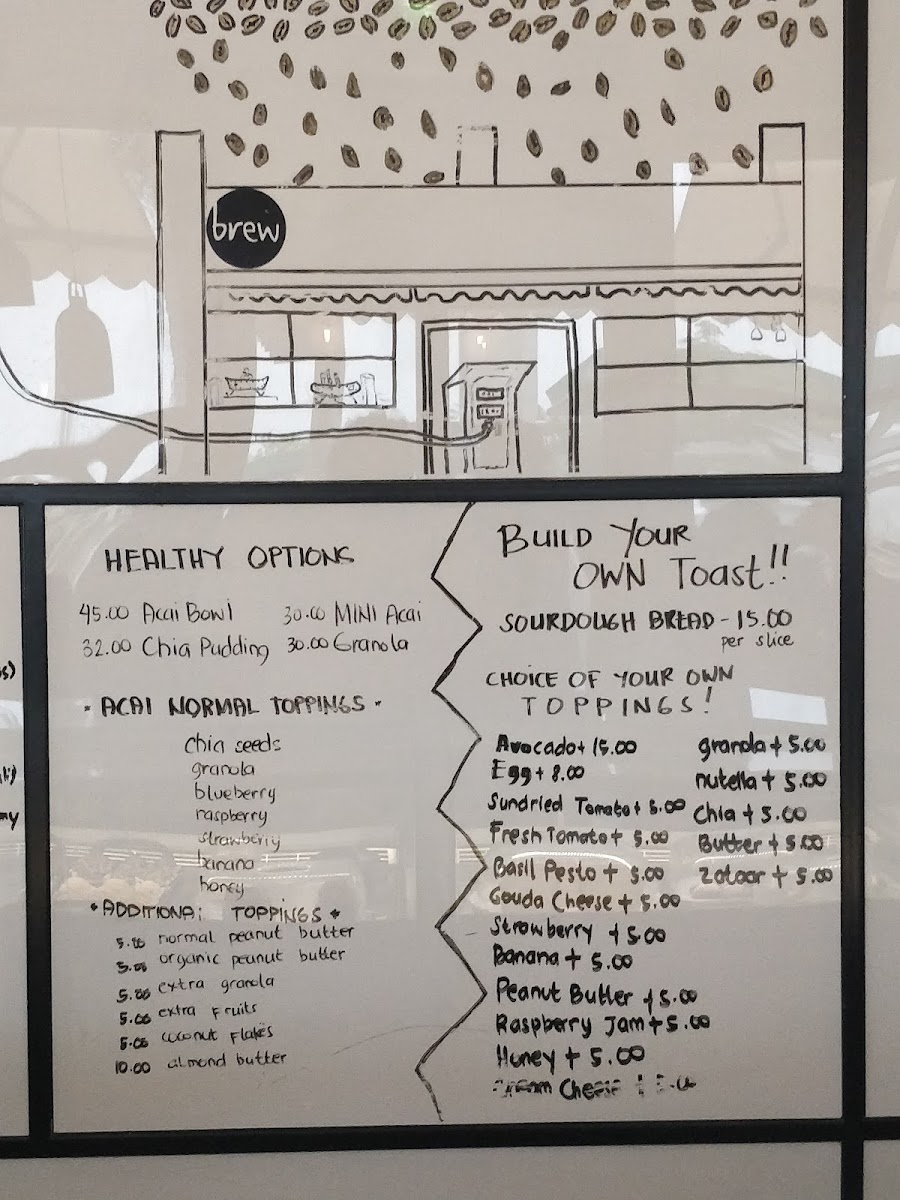 brew
HEALTHY OPTIONS
45.00 Acai Bowl 30.00 MINI Acai
32.00 Chia Pudding 30.00 Granola
· ACAI NORMAL TOPPINGS ·
chia seeds
granola
blueberry
raspberry
strawberry
banana
honey
*ADDITIONAL TOPPINGS*
5.00 normal peanut butter
5.00 organic peanut butter
5.00 extra granola
5.00 extra fruits
5.00 coconut flakes
10.00 almond butter
BUILD YOUR
OWN Toast!!
SOURDOUGH BREAD - 15.00
per slice
CHOICE OF YOUR OWN
TOPPINGS!
Avocado + 15.00
Egg + 8.00
Sundried Tomato + 5.00
Fresh Tomato + 5.00
Basil Pesto + 5.00
Gouda Cheese + 5.00
Strawberry + 5.00
Banana + 5.00
Peanut Butter + 5.00
Raspberry Jam + 5.00
Honey + 5.00
Cream Cheese +
granola + 5.00
nutella + 5.00
Chia + 5.00
Butter + 5.00
Zataar + 5.00
s)
my